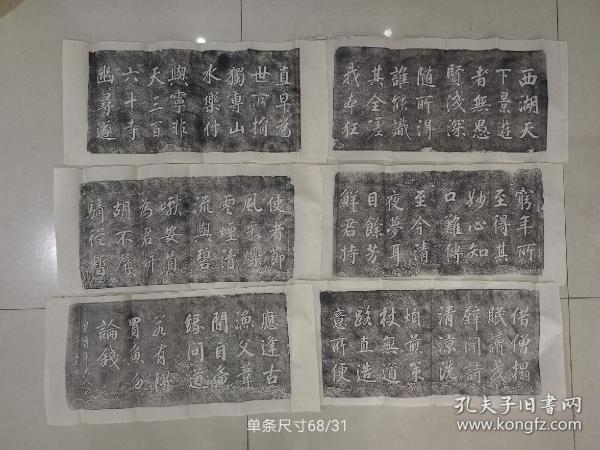 西湖天
下景遊
者無愚
賢淺深
隨所得
誰能識
其全嗟
我本狂
直早為
世所捐
獨專山
水樂付
與寧非
天三百
六十寺
幽尋遂
窮年所
至得其
妙心知
口難傳
至今清
夜夢耳
目餘芳
鮮君持
使者節
風采爍
雲煙清
流與碧
巘安肯
為君妍
胡不屏
騎從暫
借僧榻
眠讀我
壁間詩
清涼洗
煩煎策
杖無道
路直造
意所便
應逢古
漁父葦
間自延
緣問道
若有得
買魚勿
論錢
单条尺寸68/31
孔夫子旧书网
www.kongfz.com